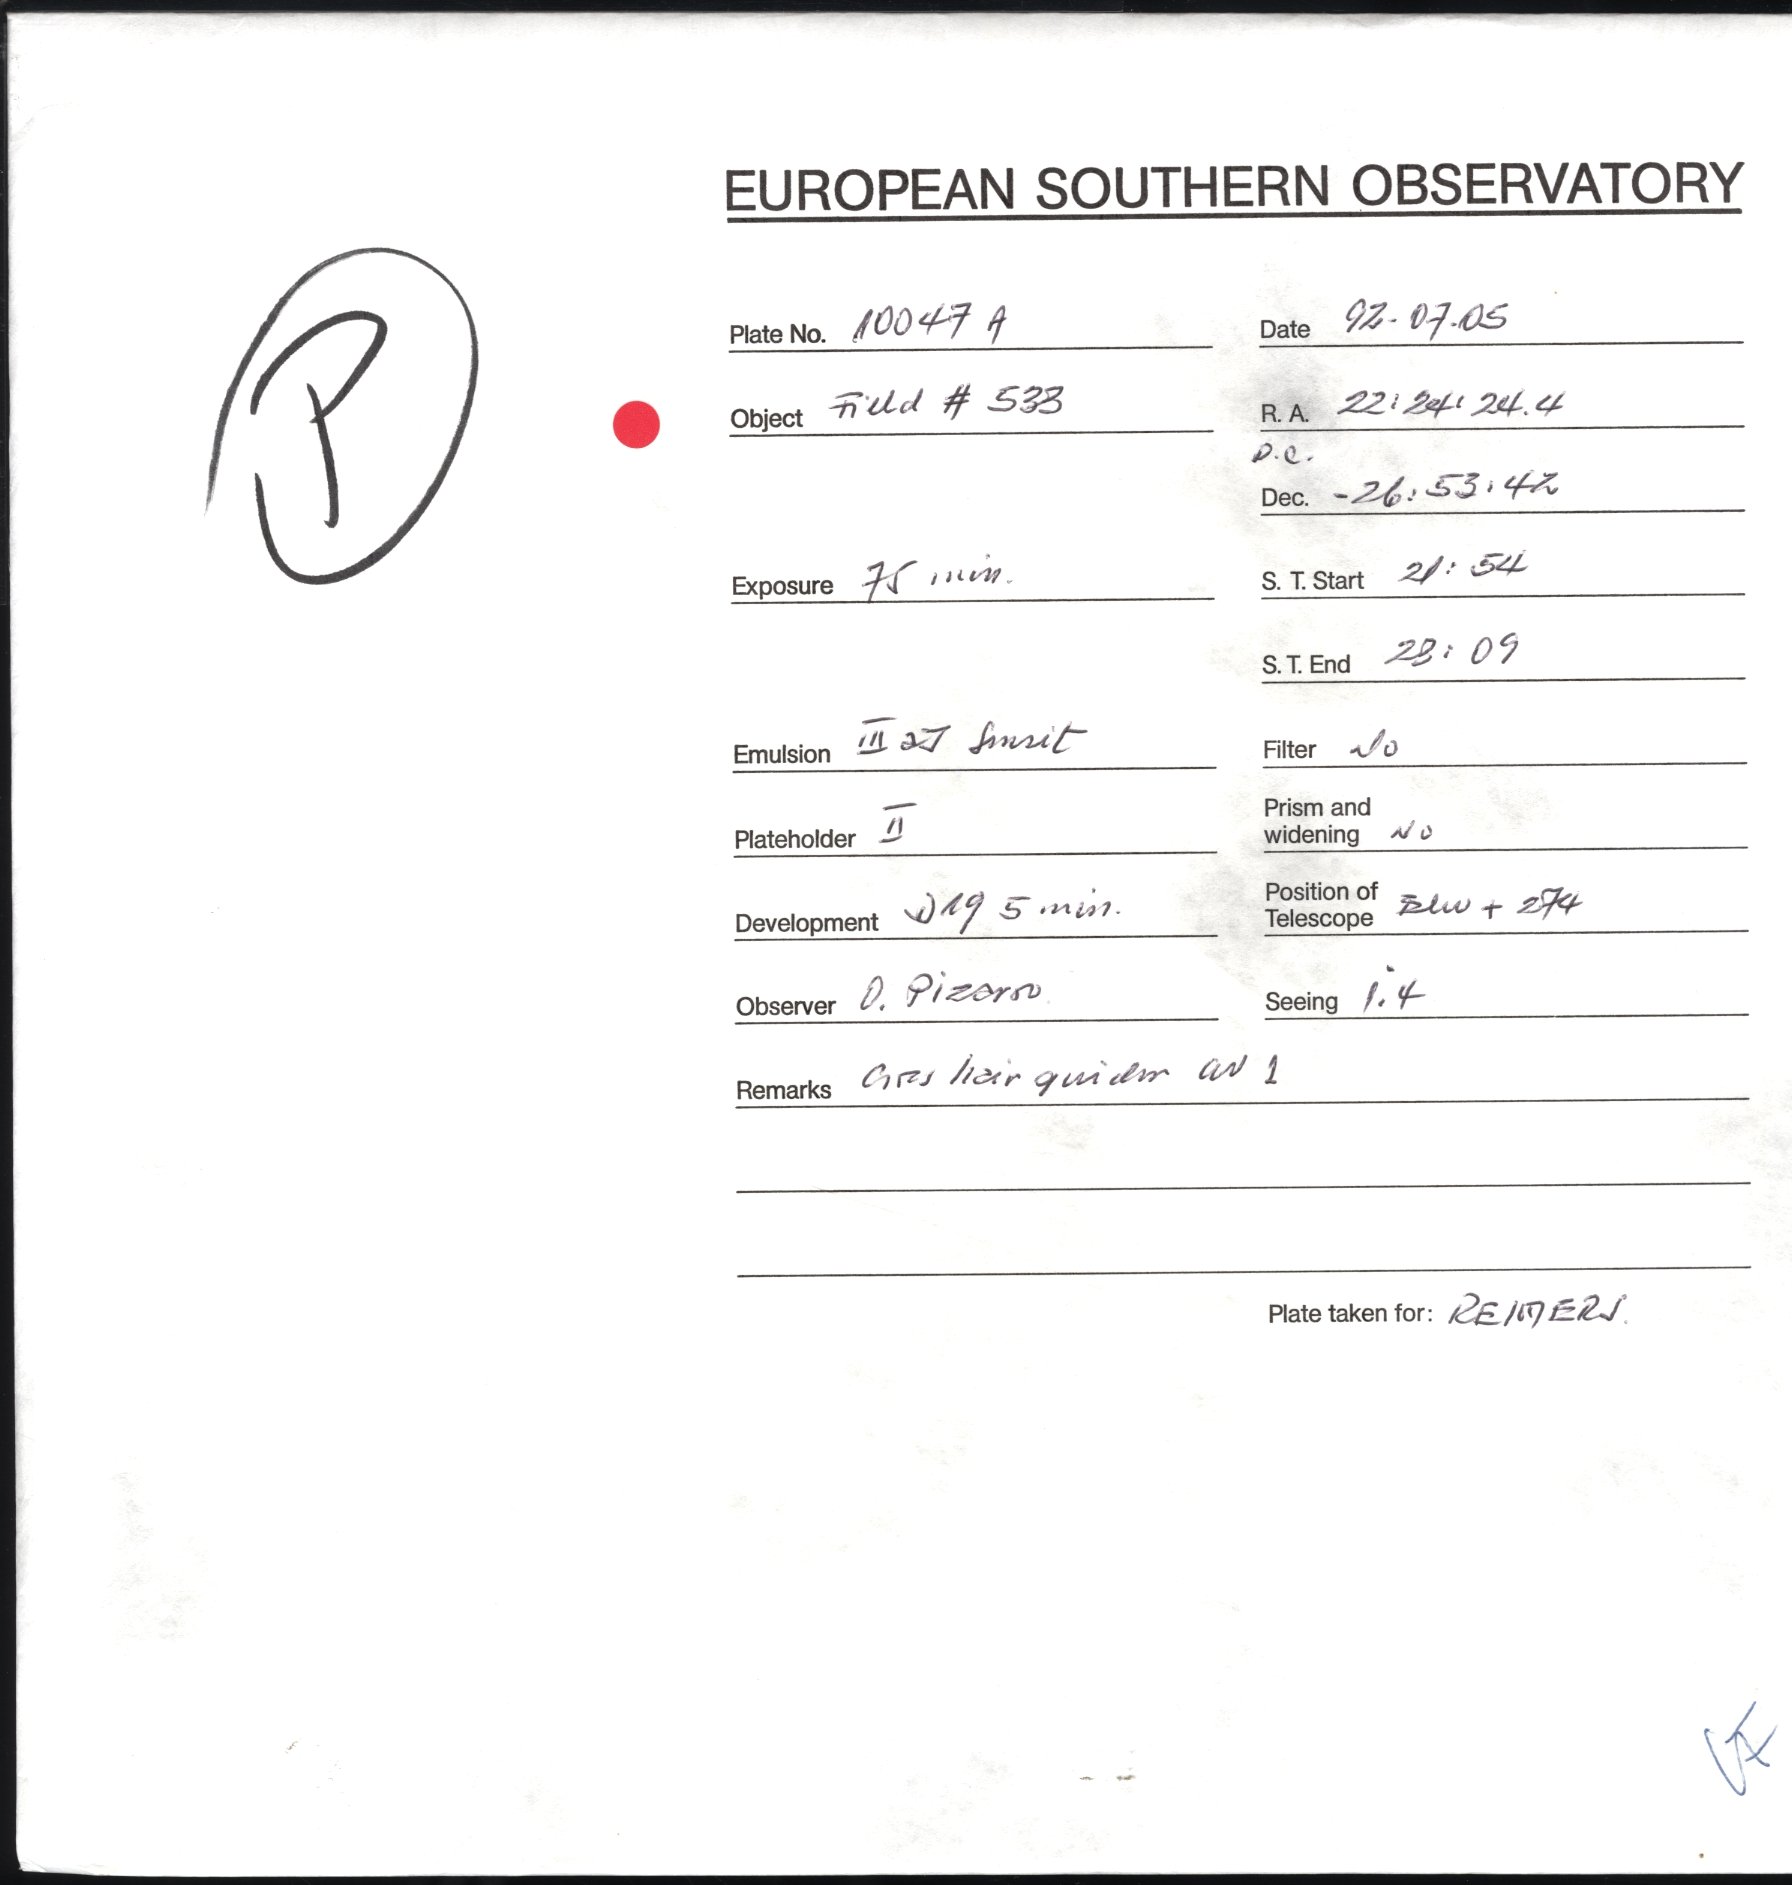 EUROPEAN SOUTHERN OBSERVATORY
P
Plate No. 10047 A
Date 92-07-05
Object Field # 533
R. A. 22:24:24.4
P.C.
Dec. -26:53:42
Exposure 75 min.
S. T. Start 21:54
S. T. End 23:09
Emulsion III aJ
Filter No
Plateholder II
Prism and
widening No
Development D19 5 min.
Position of
Telescope + 274
Observer O. Pizarro
Seeing 1.4
Remarks hair 1
Plate taken for: REIMERS.